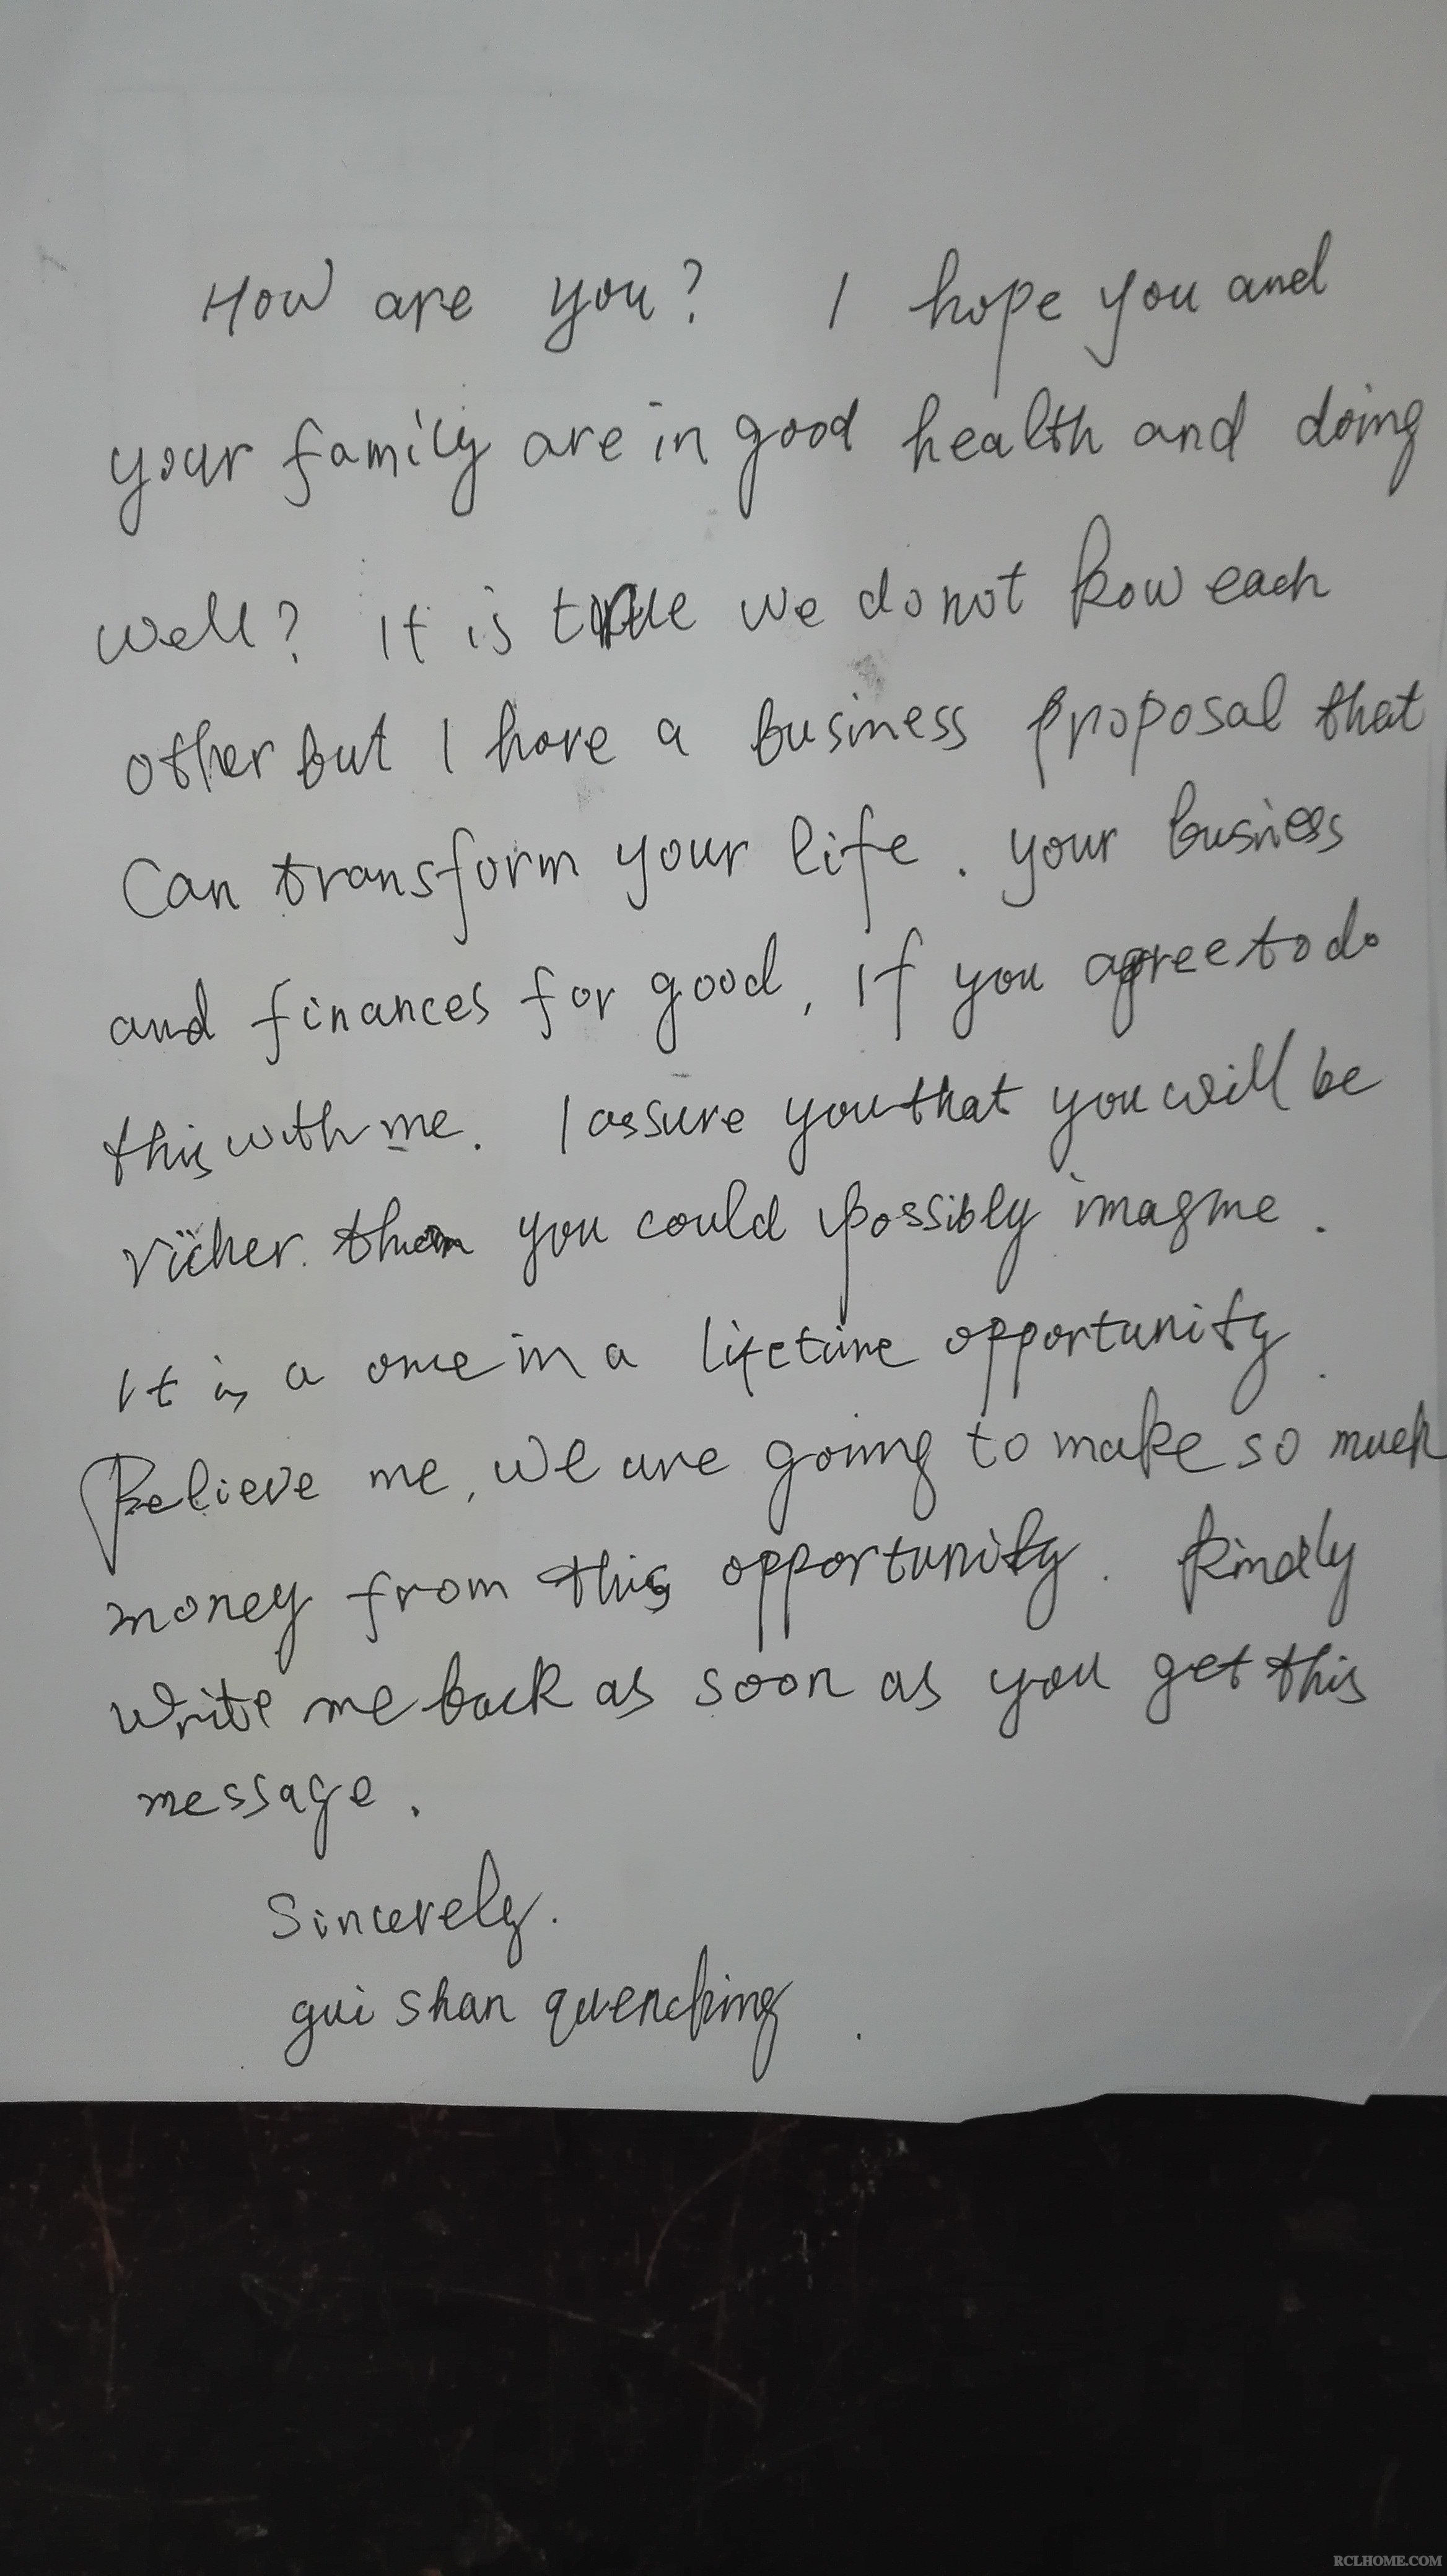 How are you? I hope you and
your family are in good health and doing
well? It is true we do not kow each
other but I have a business proposal that
Can transform your life. your business
and finances for good, if you agree to do
this with me. I assure you that you will be
richer than you could possibly imagine.
It is a once in a lifetime opportunity.
Believe me, we are going to make so much
money from this opportunity. kindly
write me back as soon as you get this
message.
Sincerely.
gui shan quenching.
RCLHOME.COM